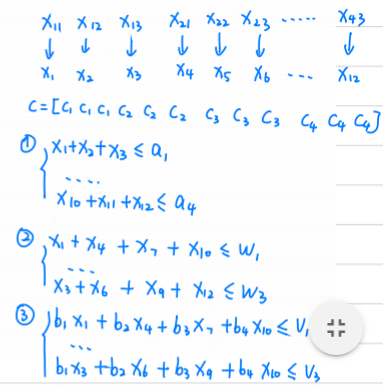 x₁₁ x₁₂ x₁₃ x₂₁ x₂₂ x₂₃ ····· x₄₃
↓ ↓ ↓ ↓ ↓ ↓ ↓
x₁ x₂ x₃ x₄ x₅ x₆ --- x₁₂
C=[C₁ C₁ C₁ C₂ C₂ C₂ C₃ C₃ C₃ C₄ C₄ C₄]
① { x₁+x₂+x₃ ≤ a₁
····
x₁₀+x₁₁+x₁₂ ≤ a₄
② { x₁ + x₄ + x₇ + x₁₀ ≤ W₁
···
x₃+x₆ + x₉ + x₁₂ ≤ W₃
③ { b₁x₁ + b₂x₄ + b₃x₇ + b₄x₁₀ ≤ V₁
···
b₁x₃ + b₂x₆ + b₃x₉ + b₄x₁₀ ≤ V₃